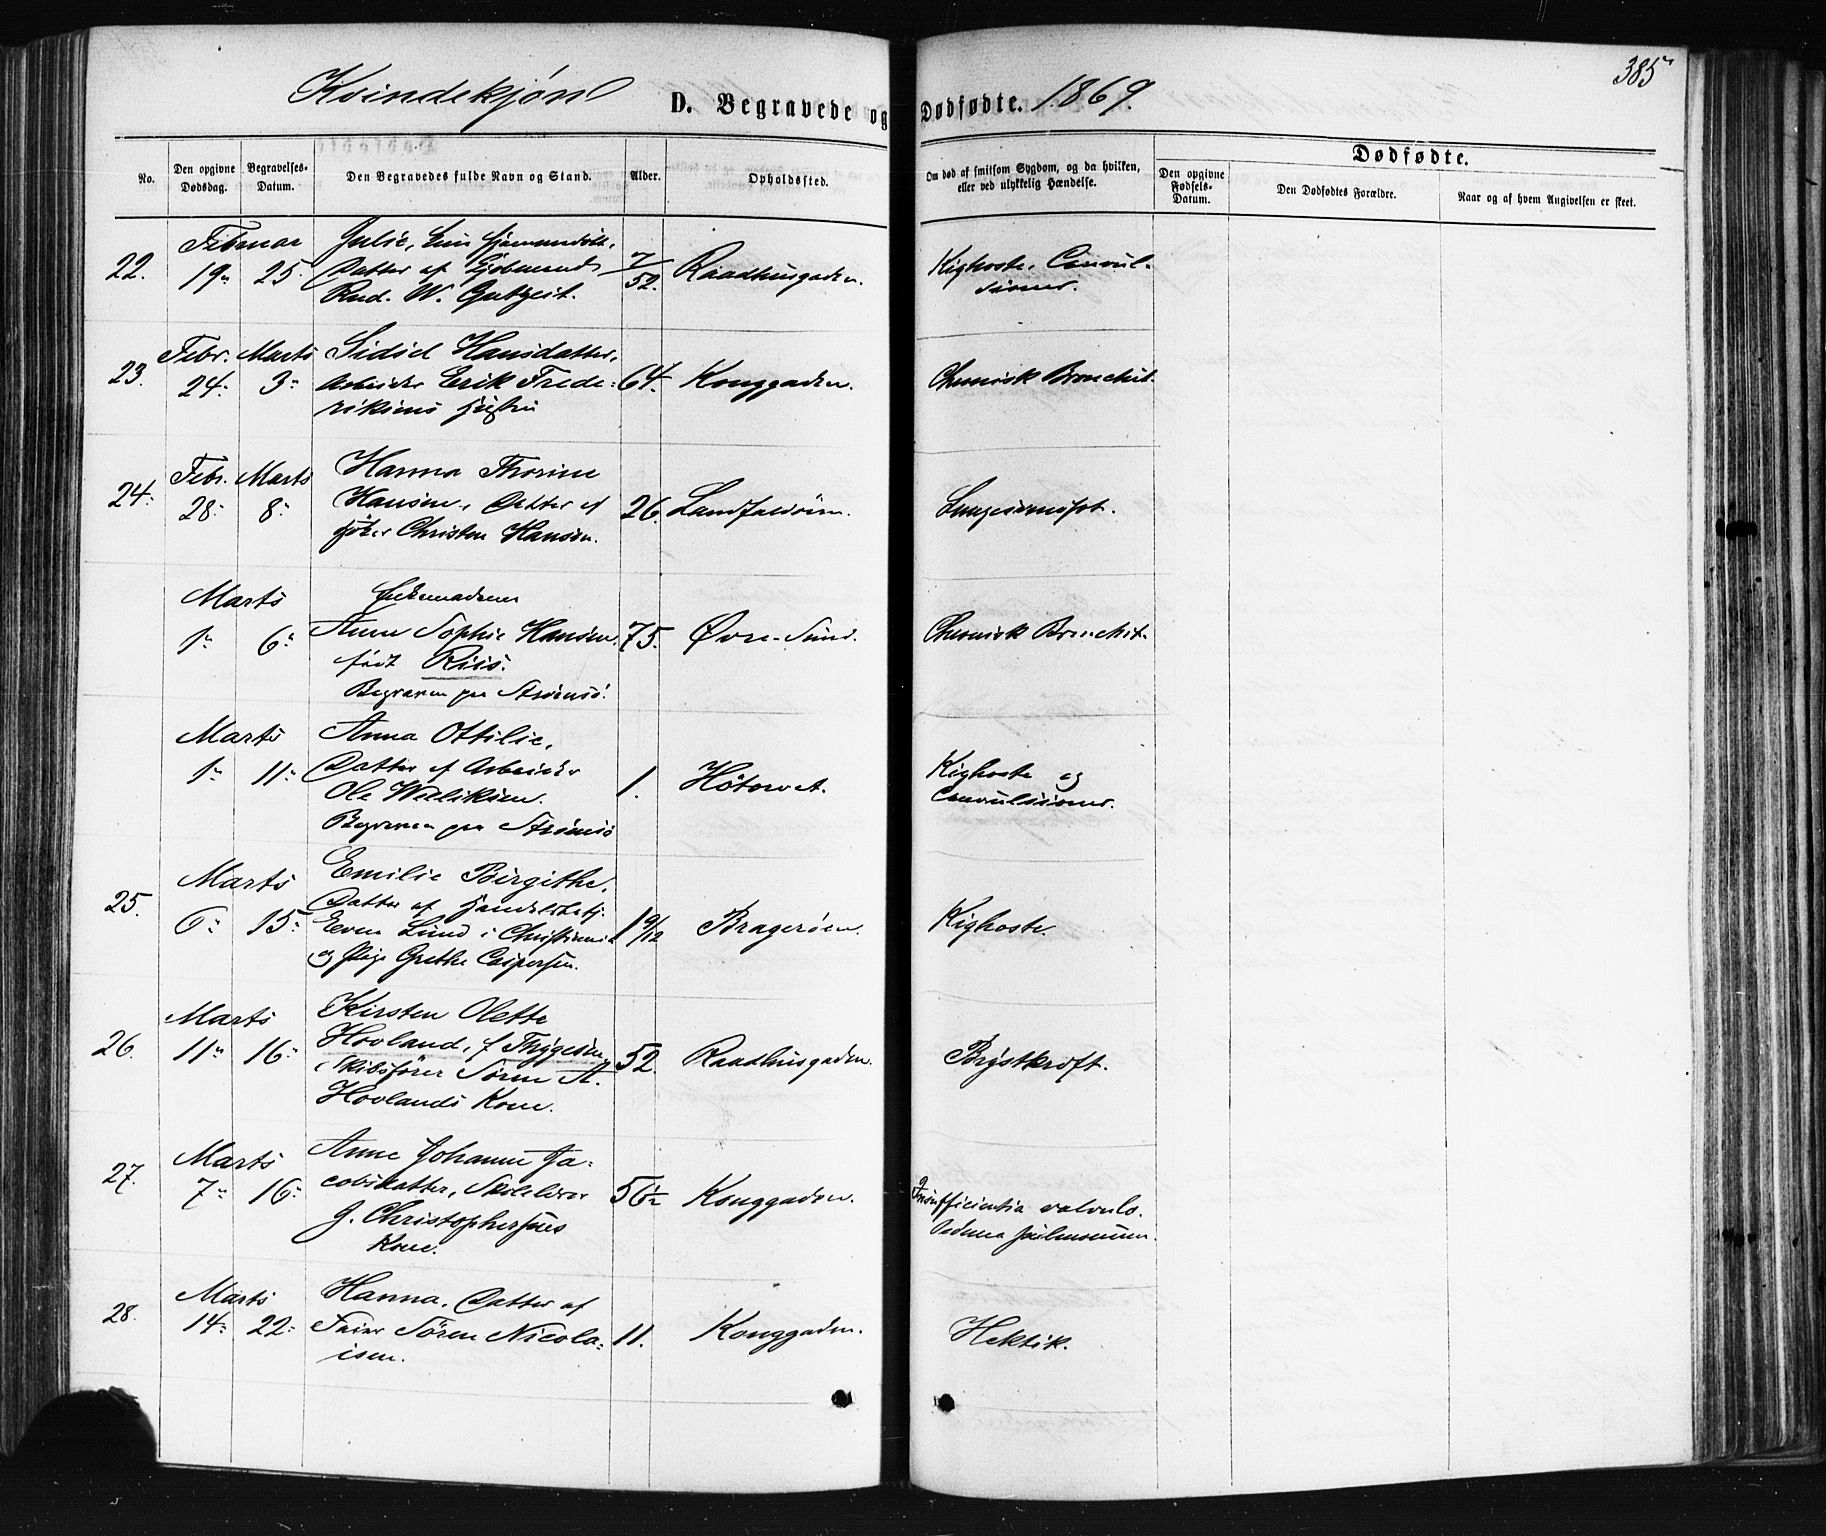 385
Kvindekjøn D. Begravede og Dødfødte. 1869.
No.
Den opgivne Dødsdag.
Begravelses-Datum.
Den Begravedes fulde Navn og Stand.
Alder.
Opholdssted.
Om død af smitsom Sygdom, og da hvilken, eller ved ulykkelig Hændelse.
Dødfødte.
Den opgivne Fødsels-Datum.
Den Dødfødtes Forældre.
Naar og af hvem Angivelsen er skeet.
Februar Julie,
22. 19 25. Datter af 7/52. Raadhusgaden. Kighoste, Convul-
Rud. W. Gutzeit. sioner.
Febr. Marts Sidsel Hansdatter,
23. 24. 3. Arbeider Erik Frede- 64. Konggaden. Chronisk Bronchit.
riksens
Febr. Marts Hanna Thorine
24. 28. 8. Hansen, Datter af 26. Landfaldöien.
Christen Hansen.
Marts Enkemadame
1 6 Anne Sophie Hansen, 75. Øvre-Sund. Chronisk Bronchit.
født Riis.
Begraven paa Strømsø.
Marts Anna Ottilie,
1 11 Datter af Arbeider 1. Hötorvet. Kighoste og
Ole Convulsioner.
Begraven paa Strömsö
Marts Emilie Birgithe,
25. 6 15 Datter af
Even Lund i Christiania 1 9/12 Bragerøen. Kighoste.
og Pige Grethe Caspersen.
Marts Kirsten Olette
26. 11 16 Hovland, f. Thygesen, 52. Raadhusgaden. Brystkræft.
Skibsfører Sören A.
Hovlands Kone.
Marts Anne Johanne Ja-
27. 7 16 cobsdatter, Skolelærer 56½ Konggaden. Insufficientia valvulo.
J. Christophersens
Kone.
Marts Hanna, Datter af
28. 14 22 Sören Nicola- 11. Konggaden. Hektik.
isen.